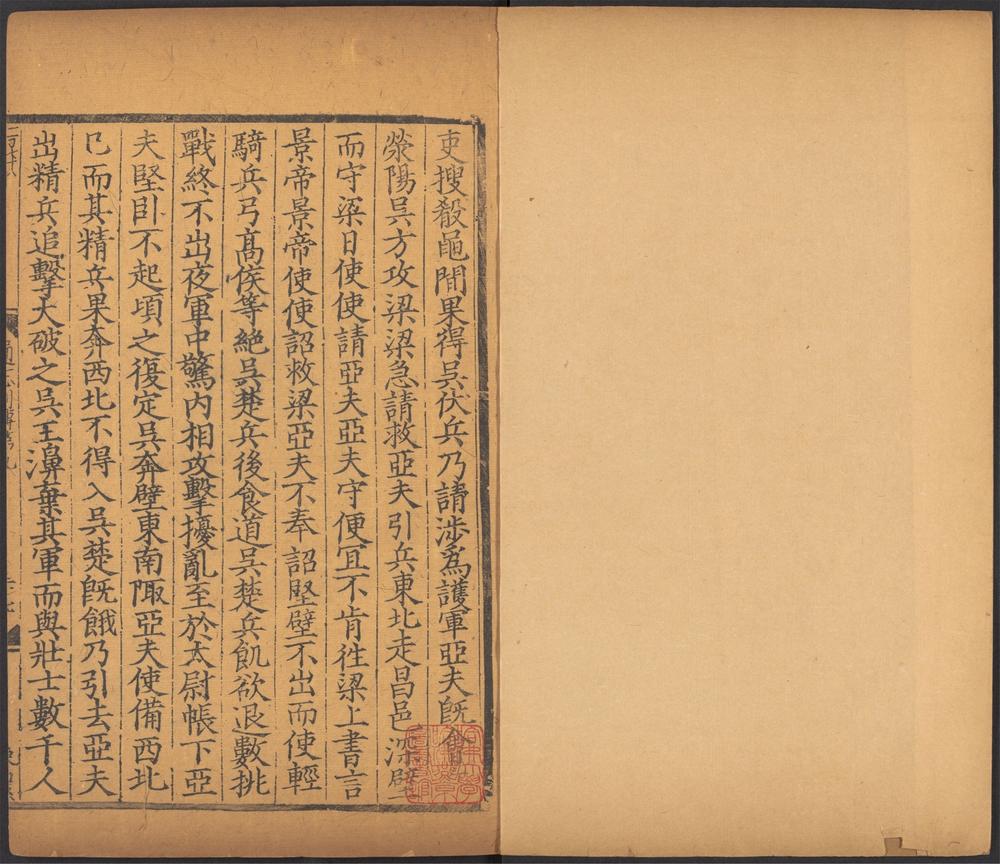 吏搜殽黽間果得吳伏兵乃請涉爲護軍亞夫旣會
滎陽吳方攻梁梁急請救亞夫引兵東北走昌邑深壁
而守梁日使使請亞夫亞夫守便冝不肯徃梁上書言
景帝景帝使使詔救梁亞夫不奉詔堅壁不出而使輕
騎兵弓髙侯等絶吳楚兵後食道吳楚兵飢欲退數挑
戰終不出夜軍中驚内相攻擊擾亂至於太尉帳下亞
夫堅卧不起頃之復定吳奔壁東南陬亞夫使備西北
已而其精兵果奔西北不得入吳楚旣餓乃引去亞夫
出精兵追擊大破之吳王濞棄其軍而與壯士數千人